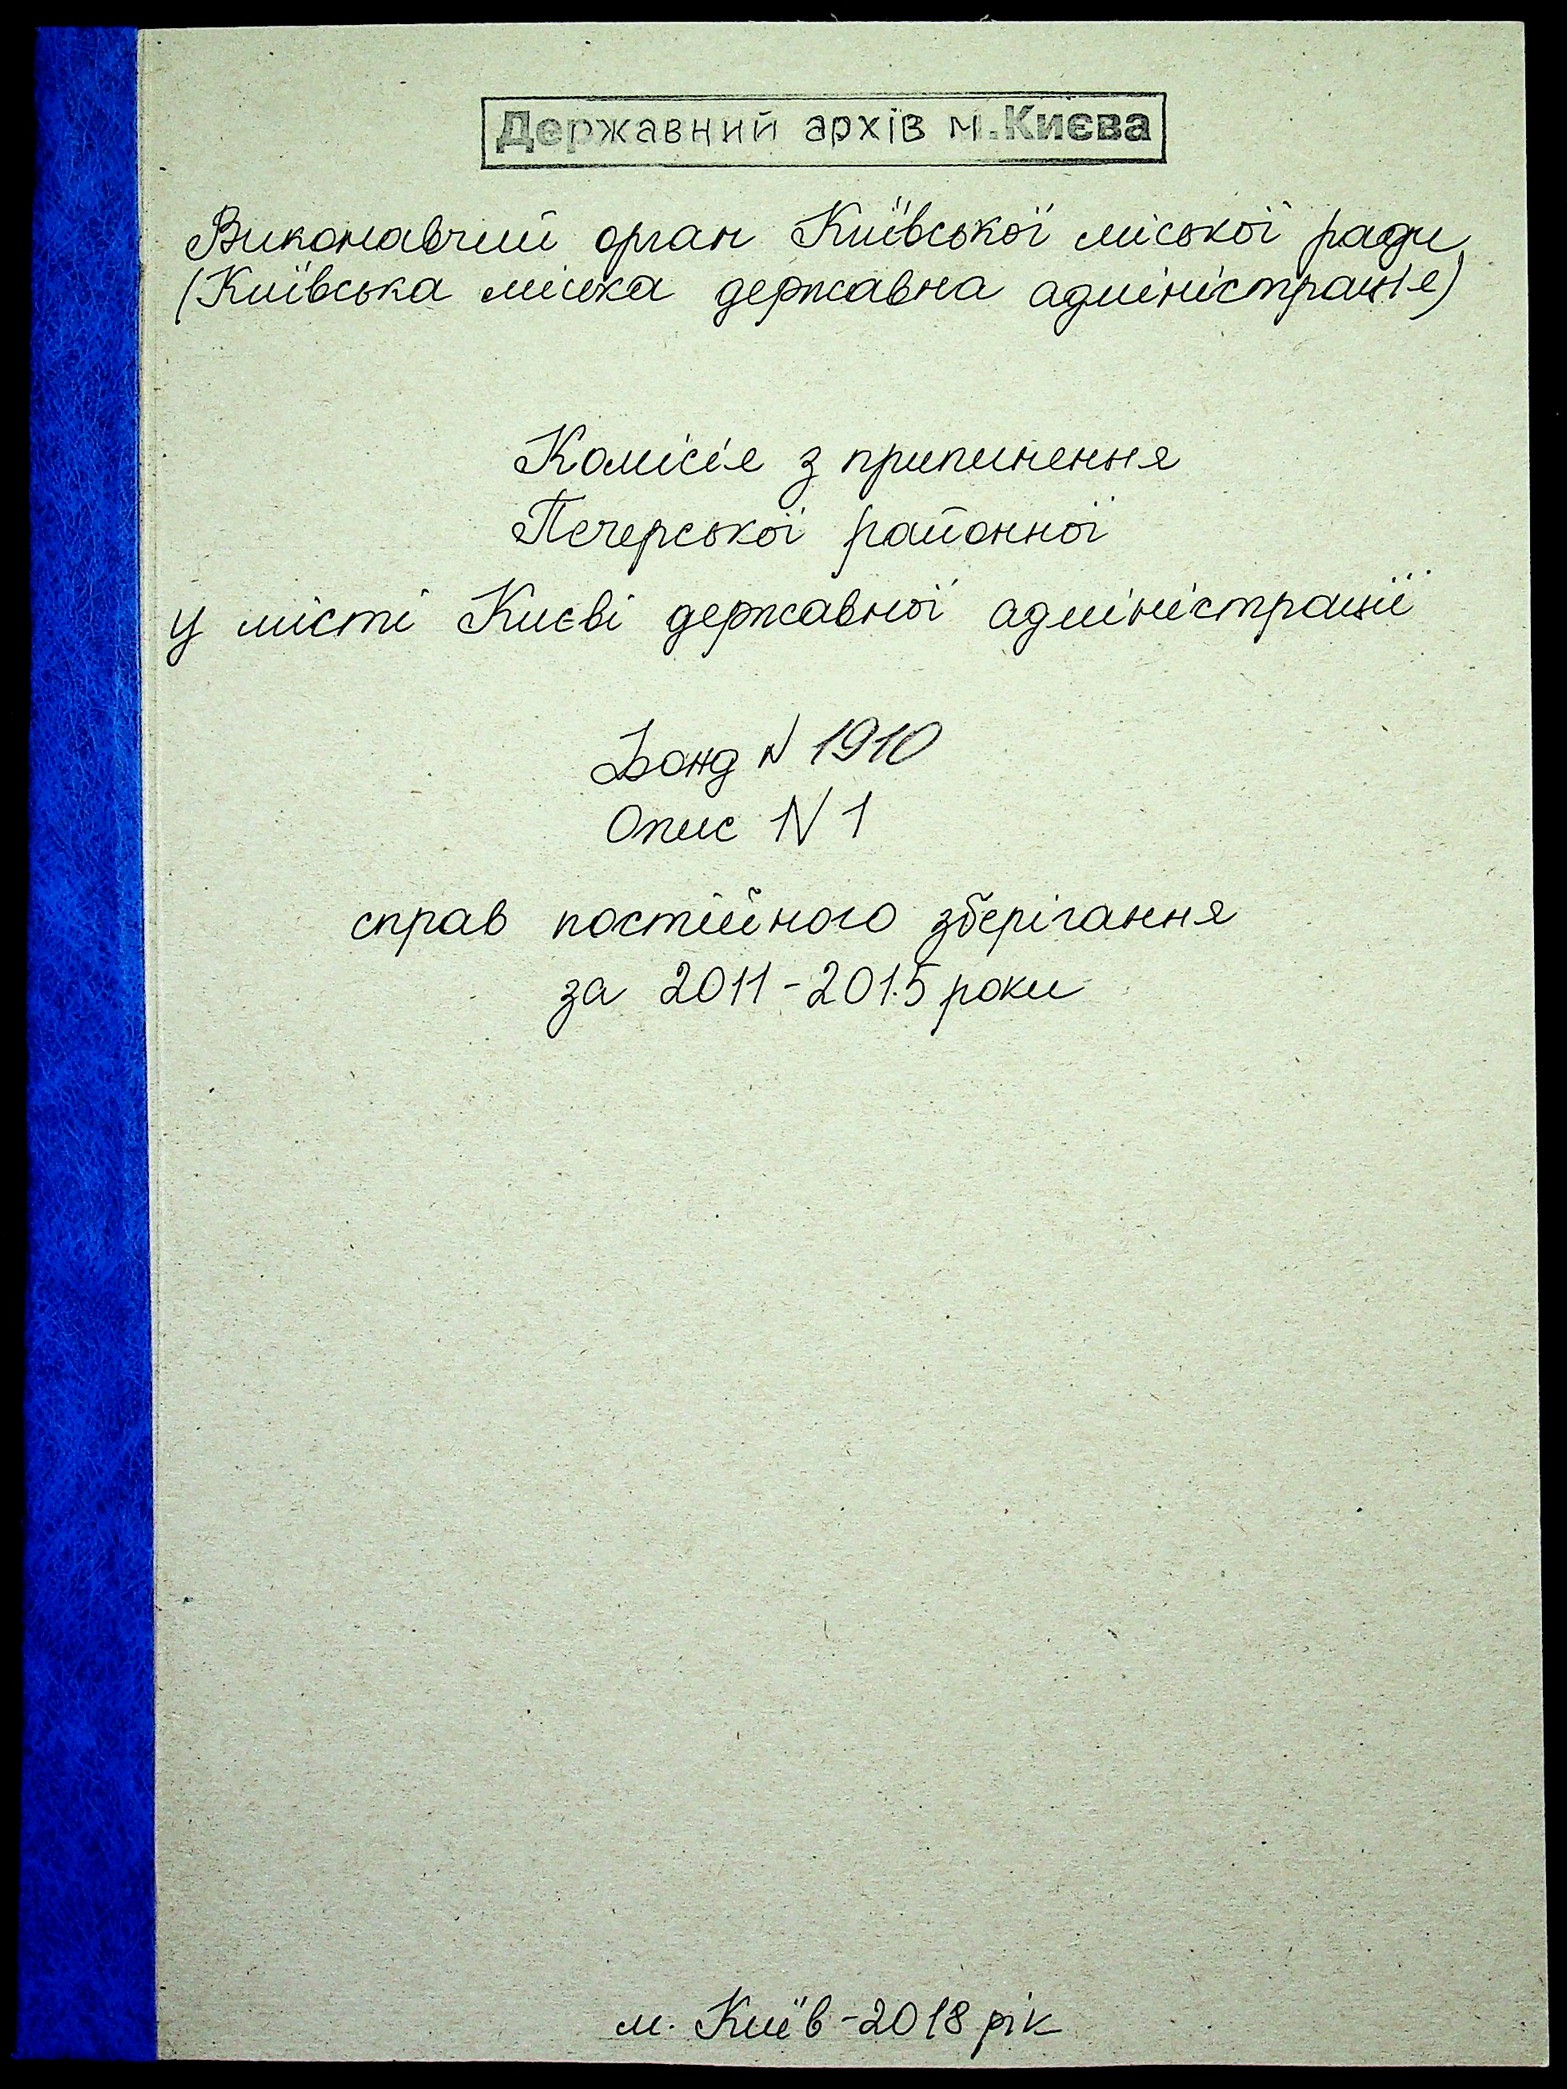 Державний архів м.Києва
Виконавчий орган Київської міської ради
(Київська міська державна адміністрація)
Комісія з припинення
Печерської районної
у місті Києві державної адміністрації
Фонд N 1910
Опис N 1
справ постійного зберігання
за 2011-2015 роки
м. Київ-2018 рік